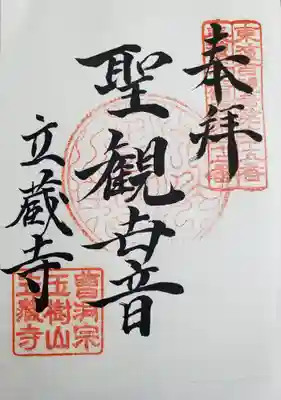 奉拝
聖観世音
立蔵寺
曹洞宗
玉樹山
立蔵寺